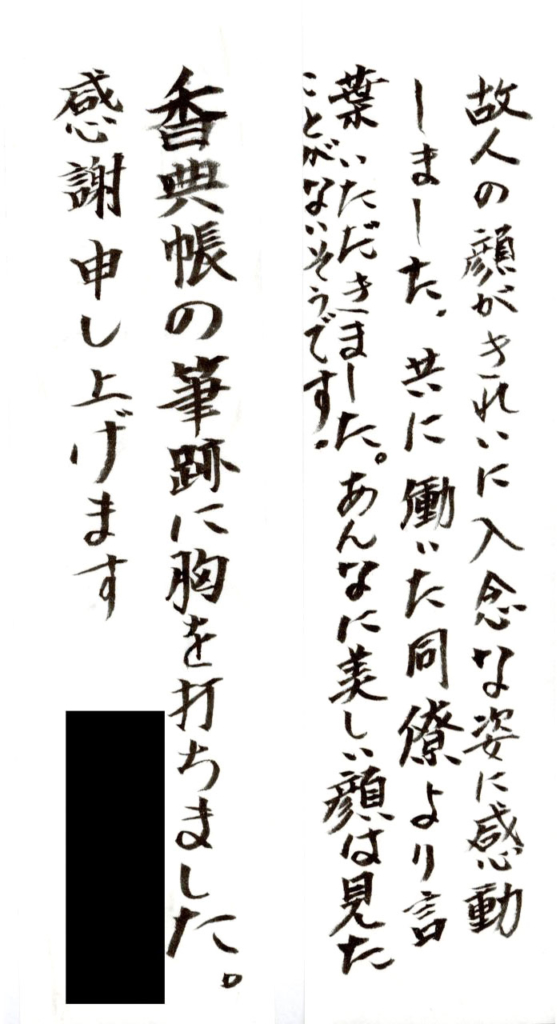 故人の顔がきれいに入念な姿に感動
しました。共に働いた同僚より言
葉いただきました。あんなに美しい顔は見た
ことがないそうです。
香典帳の筆跡に胸を打ちました。
感謝申し上げます